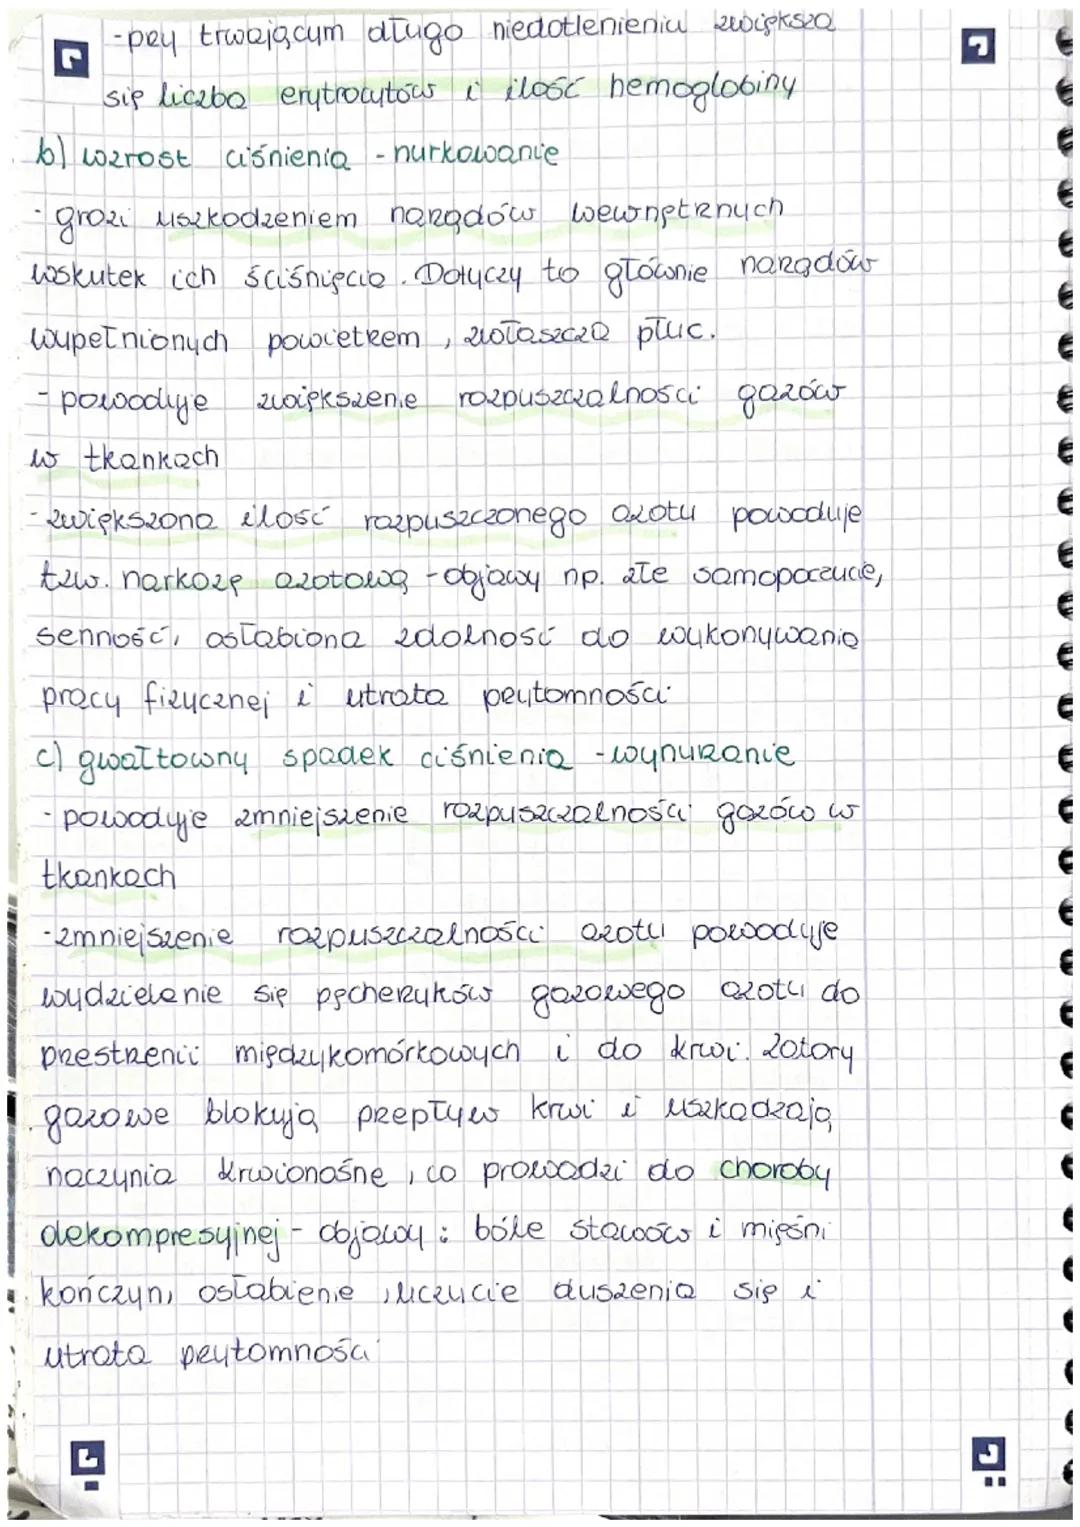 -przy trwającym długo niedotlenieniu zwiększa
się liczba erytrocytów i ilość hemoglobiny
b) wzrost ciśnienia - nurkowanie
- grozi uszkodzeniem narządów wewnętrznych
wskutek ich ściśnięcia. Dotyczy to głównie narządów
wypełnionych powietrzem, zwłaszcza płuc.
- powoduje zwiększenie rozpuszczalności gazów
w tkankach
- zwiększona ilość rozpuszczonego azotu powoduje
tzw. narkozę azotową - objawy np. złe samopoczucie,
senność, osłabiona zdolność do wykonywania
pracy fizycznej i utrata przytomności
c) gwałtowny spadek ciśnienia - wynurzanie
- powoduje zmniejszenie rozpuszczalności gazów w
tkankach
- zmniejszenie rozpuszczalności azotu powoduje
wydzielanie się pęcherzyków gazowego azotu do
przestrzeni międzykomórkowych i do krwi. Zatory
gazowe blokują przepływ krwi i uszkadzają
naczynia krwionośne, co prowadzi do choroby
dekompresyjnej - objawy: bóle stawów i mięśni
kończyn, osłabienie, uczucie duszenia się i
utrata przytomności